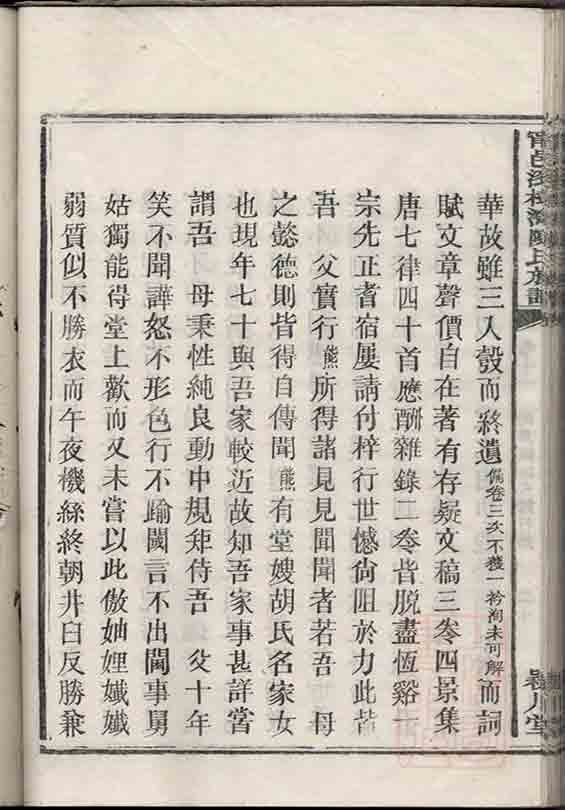 華故雖三入彀而終遺備卷三次不獲一衿洵未可解而詞
賦文章聲價自在著有存疑文稿三卷四景集
唐七律四十首應酬雜錄二卷皆脫盡恆谿一
宗先正耆宿屢請付梓行世憾尙阻於力此皆
吾　父實行熊所得諸見見聞聞者若吾　母
之懿德則皆得自傳聞熊有堂嫂胡氏名家女
也現年七十與吾家較近故知吾家事甚詳嘗
謂吾　母秉性純良動中規矩侍吾　父十年
笑不聞譁怒不形色行不踰閾言不出閫事舅
姑獨能得堂上歡而又未嘗以此傲妯娌孅孅
弱質似不勝衣而午夜機絲終朝井臼反勝兼